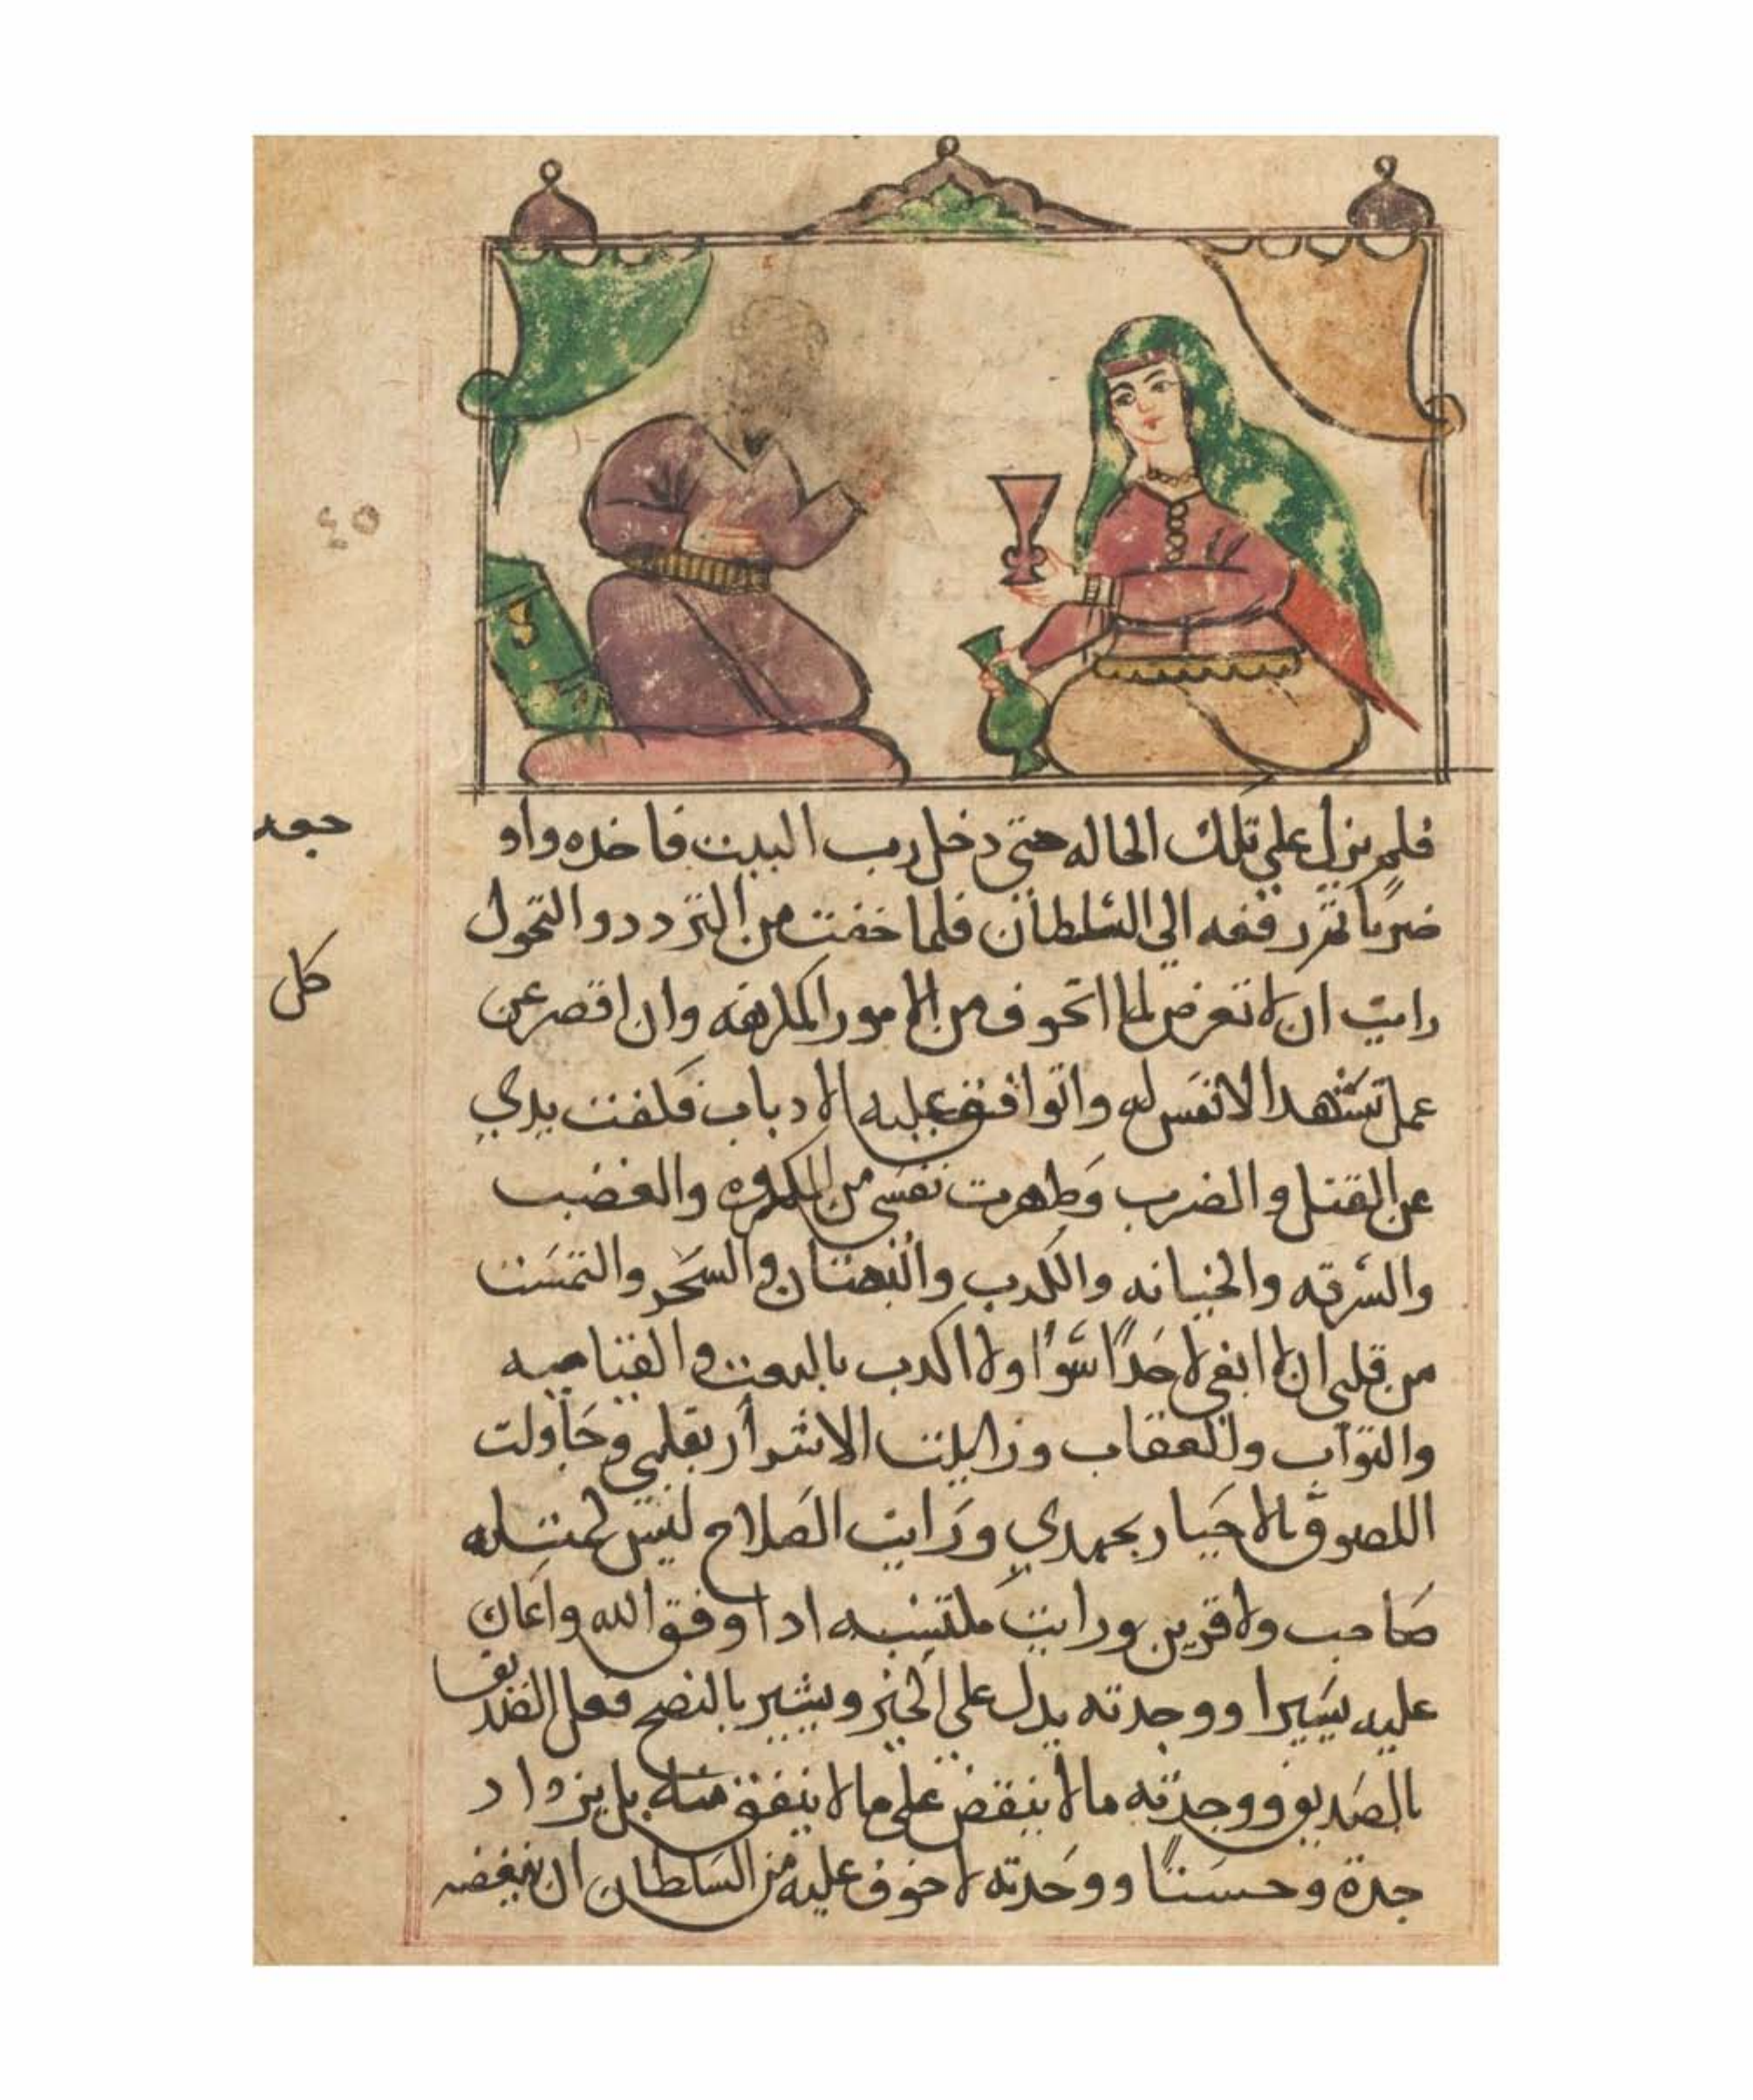 ٤٥
فلم يزل علي تلك الحاله حتي دخل رب البيت فاخده واو
ضربا تم رفعه الي السلطان فلما خفت من التردد والتحول
رايت ان لا نعرض لما اتحوف من الامور المكرهه وان اقصر عن
عمل تستهد الانفس له واتوافق عليه الادباب فكففت يدي
عن القتل والضرب وطهرت نفسي من المكروه والغضب
والسرقه والخيانه والكدب والبهتان والسحر والتمست
من قلبي ان لا ابغي لاحدا سوا ولا اكدب بالبعت والقيامه
والتواب والعقاب وزايلت الاشرار بقلبي وحاولت
اللصوق بالاخيار بجهدي ورايت الصلاح ليس كمتله
صاحب ولا قرين ورايت ملتسبه ادا وفق الله واعان
عليه يسيرا ووجدته يدل علي الخير ويشير بالنصح فعل الصديق
بالصديق ووجدته ما لا ينقض علي ما لا ينفق منه بل يزداد
جدة وحسنا ووجدته لا خوف عليه من السلطان ان يغضبه
كل